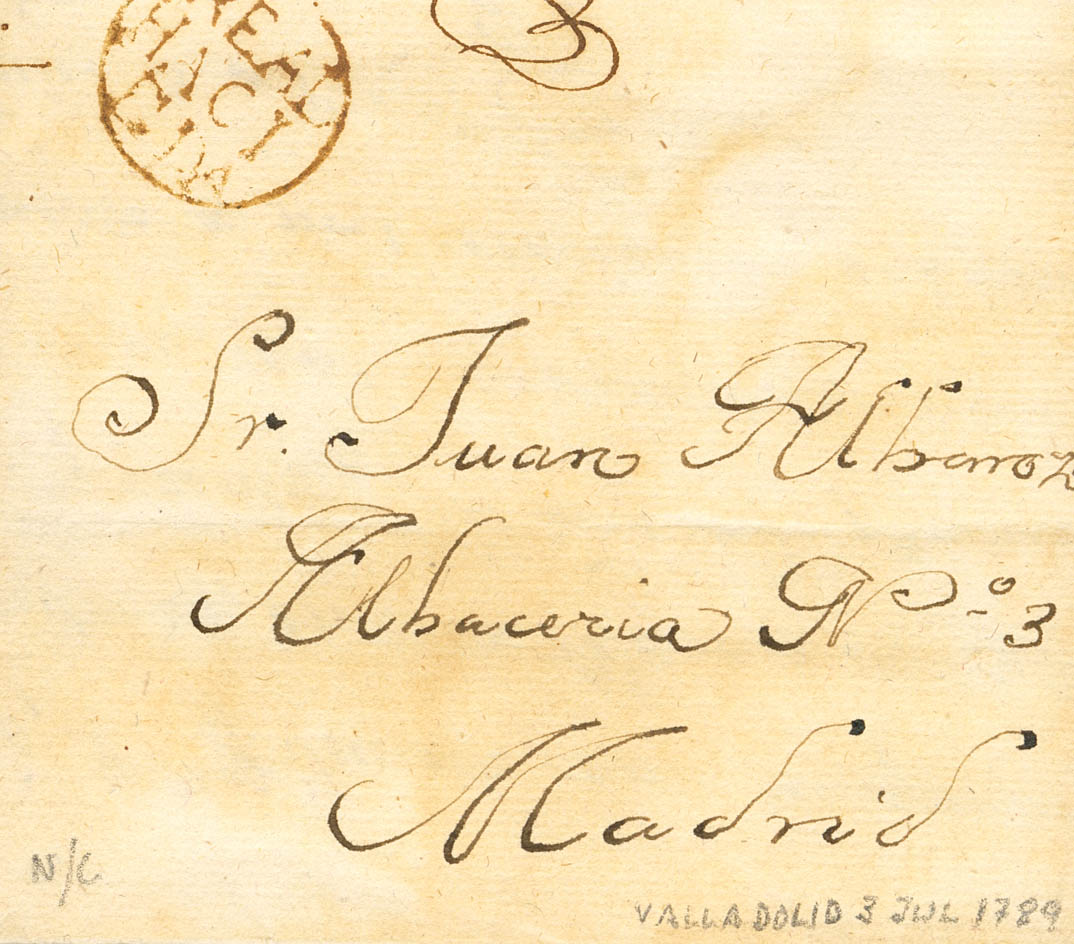 Sr. Juan Albaroz
Albaceria N.º 3
Madrid
N/C
VALLADOLID 3 JUL 1789